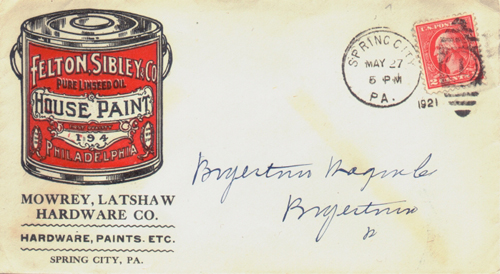 FELTON, SIBLEY & CO
PURE LINSEED OIL
HOUSE PAINT
194
PHILADELPHIA
MOWREY, LATSHAW
HARDWARE CO.
HARDWARE, PAINTS, ETC.
SPRING CITY, PA.
SPRING CITY
MAY 27
5 PM
PA.
1921
U.S. POSTAGE
2 CENTS 2
Boyertown
Boyertown